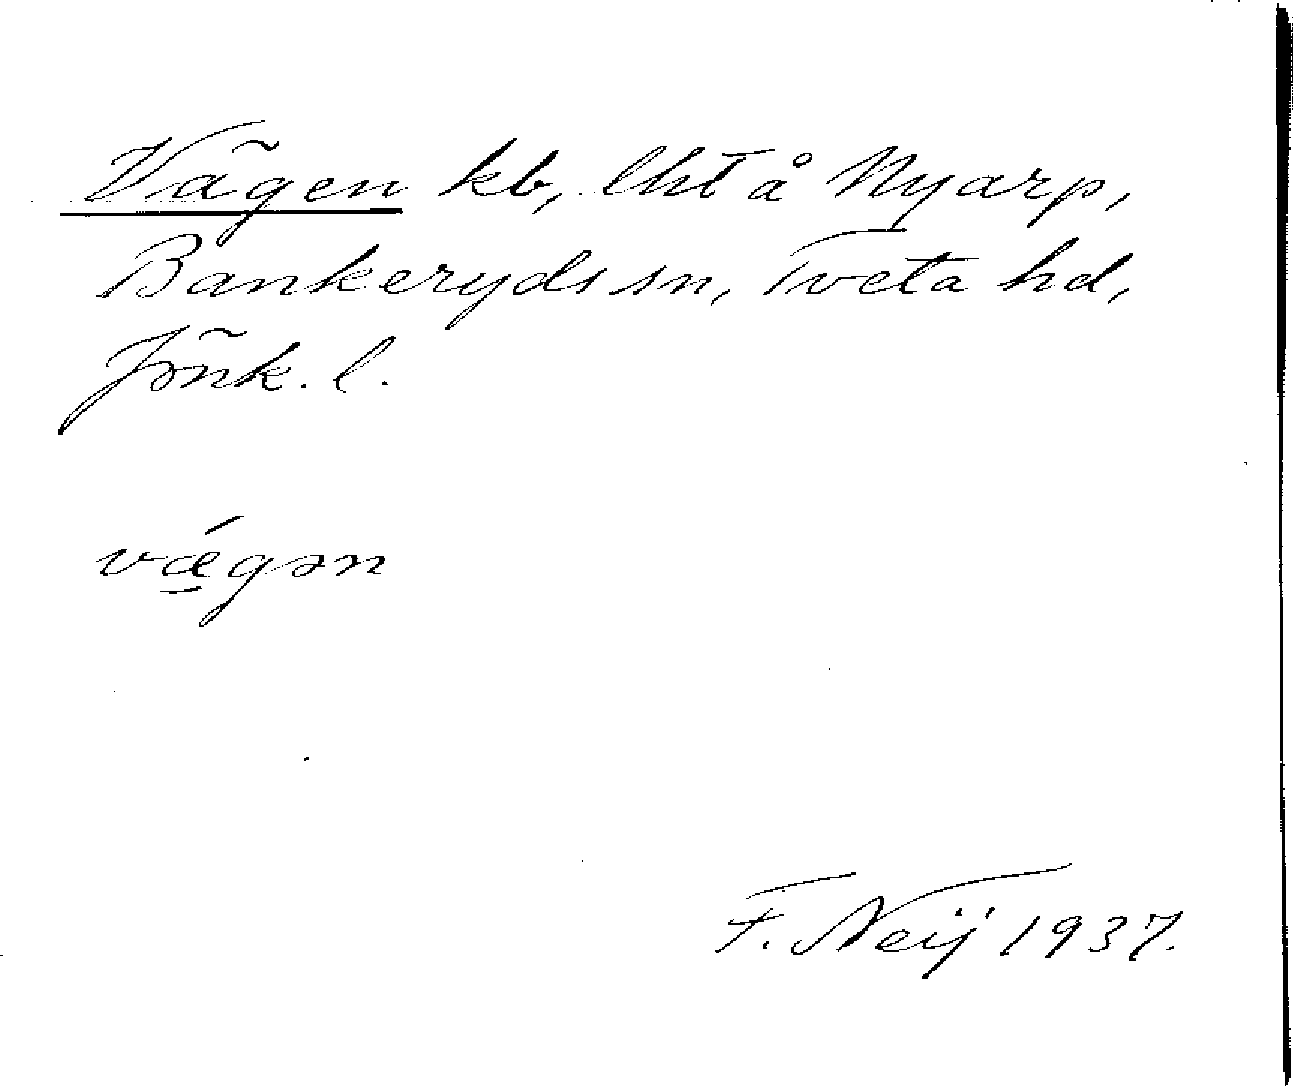 Vägen kb, lht å Nyarp,
Bankeryds sn, Tveta hd,
Jönk. l.
vǽ̱gən
F. Neij 1937.